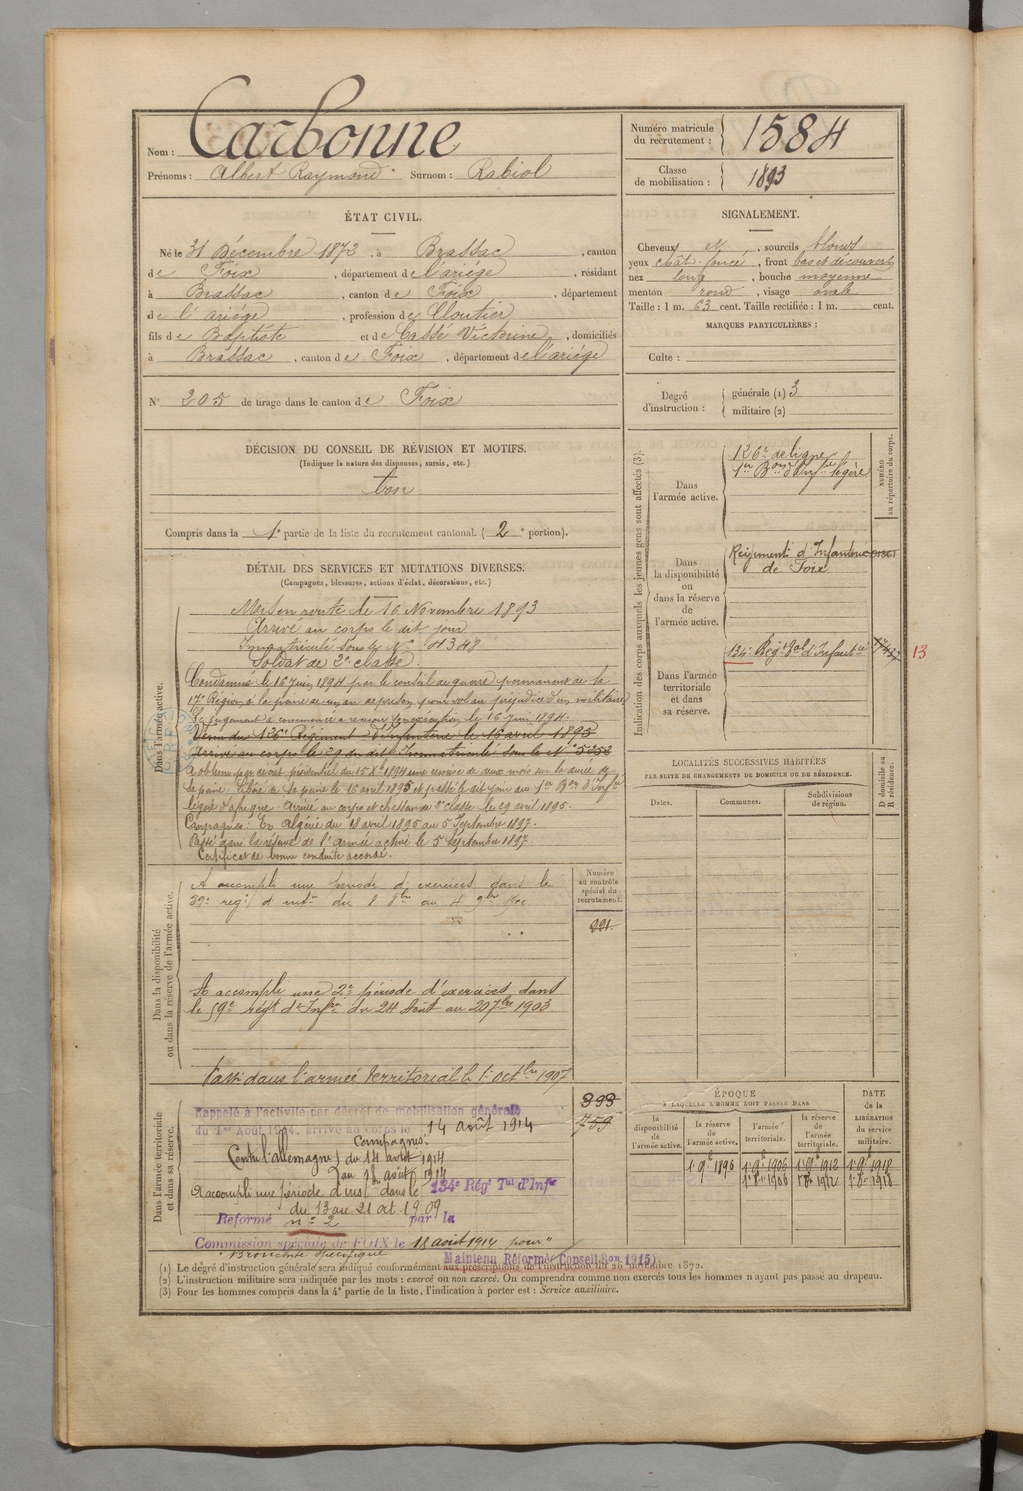 Nom : Carbonne
Prénoms : Albert Raymond Surnom : Rabiol
Numéro matricule du recrutement : 1584
Classe de mobilisation : 1893
ÉTAT CIVIL.
Né le 31 Décembre 1872, à Brassac, canton
de Foix, département de l'ariège, résidant
à Brassac, canton de Foix, département
de l'ariège, profession de Cloutier
fils de Baptiste et de Cassé Victorine, domiciliés
à Brassac, canton de Foix, département de l'ariège
N° 205 de tirage dans le canton de Foix
SIGNALEMENT.
Cheveux et, sourcils blonds
yeux chât. foncé, front bas et découvert
nez long, bouche moyenne
menton rond, visage ovale
Taille : 1 m. 63 cent. Taille rectifiée : 1 m. cent.
MARQUES PARTICULIÈRES :
Culte :
Degré d'instruction : générale (1) 3
militaire (2)
DÉCISION DU CONSEIL DE RÉVISION ET MOTIFS.
(Indiquer la nature des dispenses, sursis, etc.)
bon
Compris dans la 1e partie de la liste du recrutement cantonal. (2e portion).
DÉTAIL DES SERVICES ET MUTATIONS DIVERSES.
(Campagnes, blessures, actions d'éclat, décorations, etc.)
Dans l'armée active.
Mis en route le 16 Novembre 1893
Arrivé au corps le dit jour
Immatriculé sous le N° 4348
Soldat de 2e classe.
Condamné le 16 juin 1894 par le conseil de guerre permanent de la
17e Région à la peine de un an de prison pour vol au préjudice d'un militaire
Le jugement a commencé à recevoir son exécution le 16 juin 1894.
Venu du 126e Régiment d'Infanterie le 16 avril 1895
Arrivé au corps le 29 du dit Immatriculé sous le N° 5252
A obtenu par décret présidentiel du 15 Xbre 1894 une remise de deux mois sur la durée de
sa peine. Libéré de sa peine le 16 avril 1895 et passé le dit jour au 1er Bon d'Infie
légère d'afrique. Arrivé au corps et chasseur de 2e classe le 29 avril 1895.
Campagnes : En Algérie du 18 avril 1895 au 5 Septembre 1897.
Passé dans la réserve de l'Armée active le 5 septembre 1897.
Certificat de bonne conduite accordé.
Indication des corps auxquels les jeunes gens sont affectés (3).
Dans l'armée active.
126e de ligne
1er Bon d'Infie légère
NUMÉRO au répertoire du corps.
Dans la disponibilité ou dans la réserve de l'armée active.
Régiment d'Infanterie
de Foix
Dans l'armée territoriale et dans sa réserve.
134e Régt Tal d'Infanterie
13
LOCALITÉS SUCCESSIVES HABITÉES
PAR SUITE DE CHANGEMENTS DE DOMICILE OU DE RÉSIDENCE.
Dates. Communes. Subdivisions de région. D domicile ou R résidence.
Dans la disponibilité ou dans la réserve de l'armée active.
Numéro au contrôle spécial du recrutement.
A accompli une période d'exercices dans le
59e regt d'infie du 8 8bre au 4 9bre 1900
A accompli une 2e période d'exercices dans
le 59e régt d'Infie du 24 Août au 20 7bre 1903.
Passé dans l'armée territoriale le 1er octbre 1907
Dans l'armée territoriale et dans sa réserve.
393
759
Rappelé à l'activité par décret de mobilisation générale
du 1er Août 1914, arrivé au corps le 14 août 1914
Campagnes.
Contre l'allemagne du 14 août 1914
au 18 août 1914
A accompli une période d'inst dans le 134e Régt Tal d'Infie
du 13 au 21 oct 1909
Réformé n° 2 par la
Commission spéciale de FOIX le 18 août 1914 pour
"Bronchite spécifique"
Maintenu Réformé (Conseil Ron 1915).
ÉPOQUE
A LAQUELLE L'HOMME DOIT PASSER DANS
la disponibilité de l'armée active. la réserve de l'armée active. l'armée territoriale. la réserve de l'armée territoriale.
DATE de la LIBÉRATION du service militaire.
1 9e 1896 1 9e 1906 1 9e 1912 1 9e 1918
1 8e 1906 1 8e 1912 1 8e 1918
(1) Le dégré d'instruction générale sera indiqué conformément aux prescriptions de l'instruction du 26 novembre 1872.
(2) L'instruction militaire sera indiquée par les mots : exercé ou non exercé. On comprendra comme non exercés tous les hommes n'ayant pas passé au drapeau.
(3) Pour les hommes compris dans la 4e partie de la liste, l'indication à porter est : Service auxiliaire.